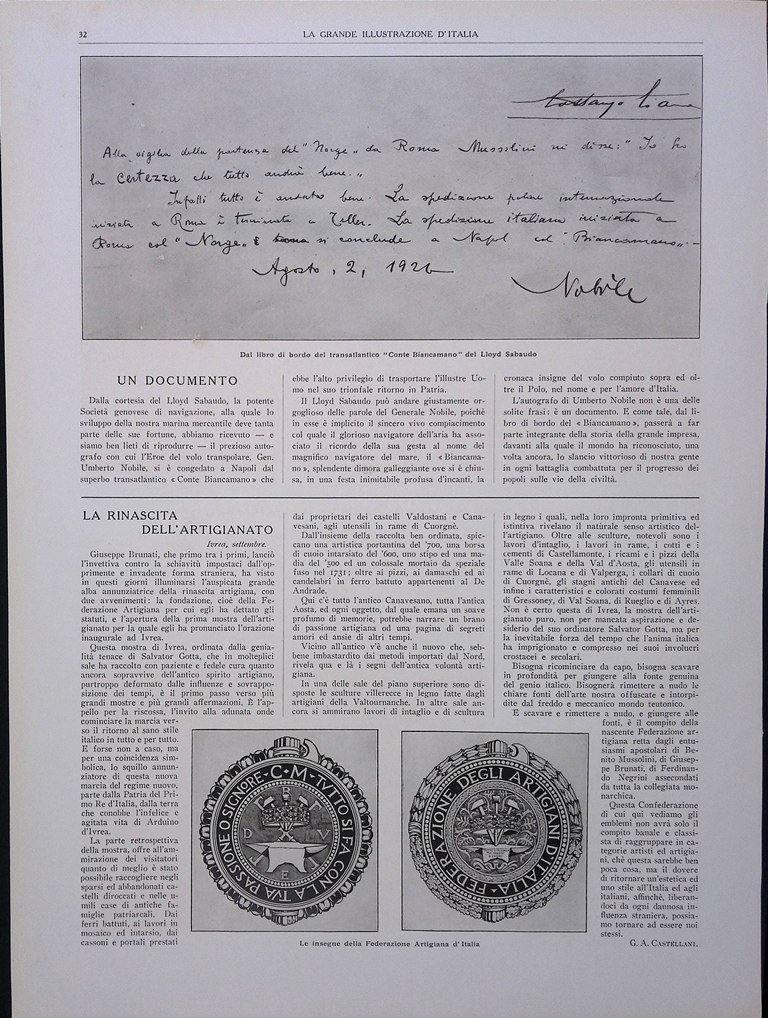 32
LA GRANDE ILLUSTRAZIONE D'ITALIA
Alla vigilia della partenza del "Norge" da Roma Mussolini mi disse: "Io ho
la certezza che tutto andrà bene."
Infatti tutto è andato bene. La spedizione polare internazionale
iniziata a Roma è terminata a Teller. La spedizione italiana iniziata a
Roma col "Norge" si conclude a Napoli col "Biancamano". -
Agosto, 2, 1926
Nobile
Dal libro di bordo del transatlantico "Conte Biancamano" del Lloyd Sabaudo
UN DOCUMENTO
Dalla cortesia del Lloyd Sabaudo, la potente
Società genovese di navigazione, alla quale lo
sviluppo della nostra marina mercantile deve tanta
parte delle sue fortune, abbiamo ricevuto — e
siamo ben lieti di riprodurre — il prezioso auto-
grafo con cui l'Eroe del volo transpolare, Gen.
Umberto Nobile, si è congedato a Napoli dal
superbo transatlántico « Conte Biancamano » che
ebbe l'alto privilegio di trasportare l'illustre Uo-
mo nel suo trionfale ritorno in Patria.
Il Lloyd Sabaudo può andare giustamente or-
goglioso delle parole del Generale Nobile, poichè
in esse è implicito il sincero vivo compiacimento
col quale il glorioso navigatore dell'aria ha asso-
ciato il ricordo della sua gesta al nome del
magnifico navigatore del mare, il « Biancama-
no », splendente dimora galleggiante ove si è chiu-
sa, in una festa inimitabile profusa d'incanti, la
cronaca insigne del volo compiuto sopra ed ol-
tre il Polo, nel nome e per l'amore d'Italia.
L'autografo di Umberto Nobile non è una delle
solite frasi: è un documento. E come tale, dal li-
bro di bordo del « Biancamano », passerà a far
parte integrante della storia della grande impresa,
davanti alla quale il mondo ha riconosciuto, una
volta ancora, lo slancio vittorioso di nostra gente
in ogni battaglia combattuta per il progresso dei
popoli sulle vie della civiltà.
LA RINASCITA
DELL'ARTIGIANATO
Ivrea, settembre.
Giuseppe Brunati, che primo tra i primi, lanciò
l'invettiva contro la schiavitù impostaci dall'op-
primente e invadente forma straniera, ha visto
in questi giorni illuminarsi l'auspicata grande
alba annunziatrice della rinascita artigiana, con
due avvenimenti: la fondazione, cioè della Fe-
derazione Artigiana per cui egli ha dettato gli
statuti, e l'apertura della prima mostra dell'arti-
gianato per la quale egli ha pronunciato l'orazione
inaugurale ad Ivrea.
Questa mostra di Ivrea, ordinata dalla genia-
lità tenace di Salvator Gotta, che in molteplici
sale ha raccolto con paziente e fedele cura quanto
ancora sopravvive dell'antico spirito artigiano,
purtroppo deformato dalle influenze e sovrappo-
sizione dei tempi, è il primo passo verso più
grandi mostre e più grandi affermazioni. È l'ap-
pello per la riscossa, l'invito alla adunata onde
cominciare la marcia ver-
so il ritorno al sano stile
italico in tutto e per tutto.
E forse non a caso, ma
per una coincidenza sim-
bolica, lo squillo annun-
ziatore di questa nuova
marcia del regime nuovo,
parte dalla Patria del Pri-
mo Re d'Italia, dalla terra
che conobbe l'infelice e
agitata vita di Arduino
d'Ivrea.
La parte retrospettiva
della mostra, offre all'am-
mirazione dei visitatori
quanto di meglio è stato
possibile raccogliere negli
sparsi ed abbandonati ca-
stelli diroccati e nelle u-
mili case di antiche fa-
miglie patriarcali. Dai
ferri battuti, ai lavori in
mosaico ed intarsio, dai
cassoni e portali prestati
dai proprietari dei castelli Valdostani e Cana-
vesani, agli utensili in rame di Cuorgnè.
Dall'insieme della raccolta ben ordinata, spic-
cano una artistica portantina del '700, una borsa
di cuoio intarsiato del '600, uno stipo ed una ma-
dia del '500 ed un colossale mortaio da speziale
fuso nel 1731; oltre ai pizzi, ai damaschi ed ai
candelabri in ferro battuto appartenenti al De
Andrade.
Qui c'è tutto l'antico Canavesano, tutta l'antica
Aosta, ed ogni oggetto, dal quale emana un soave
profumo di memorie, potrebbe narrare un brano
di passione artigiana od una pagina di segreti
amori ed ansie di altri tempi.
Vicino all'antico v'è anche il nuovo che, seb-
bene imbastardito dai metodi importati dal Nord,
rivela qua e là i segni dell'antica volontà arti-
giana.
In una delle sale del piano superiore sono di-
sposte le sculture villerecce in legno fatte dagli
artigiani della Valtournanche. In altre sale an-
cora si ammirano lavori di intaglio e di scultura
in legno i quali, nella loro impronta primitiva ed
istintiva rivelano il naturale senso artistico del-
l'artigiano. Oltre alle sculture, notevoli sono i
lavori d'intaglio, i lavori in rame, i cotti e i
cementi di Castellamonte, i ricami e i pizzi della
Valle Soana e della Val d'Aosta, gli utensili in
rame di Locana e di Valperga, i collari di cuoio
di Cuorgnè, gli stagni antichi del Canavese ed
infine i caratteristici e colorati costumi femminili
di Gressoney, di Val Soana, di Rueglio e di Ayres.
Non è certo questa di Ivrea, la mostra dell'arti-
gianato puro, non per mancata aspirazione e de-
siderio del suo ordinatore Salvator Gotta, ma per
la inevitabile forza del tempo che l'anima italica
ha imprigionato e compresso nei suoi involucri
crostacei e secolari.
Bisogna ricominciare da capo, bisogna scavare
in profondità per giungere alla fonte genuina
del genio italico. Bisognerà rimettere a nudo le
chiare fonti dell'arte nostra offuscate e intorpi-
dite dal freddo e meccanico mondo teutonico.
E scavare e rimettere a nudo, e giungere alle
fonti, è il compito della
nascente Federazione ar-
tigiana retta dagli entu-
siasmi apostolari di Be-
nito Mussolini, di Giusep-
pe Brunati, di Ferdinan-
do Negrini assecondati
da tutta la collegiata mo-
narchica.
Questa Confederazione
di cui qui vediamo gli
emblemi non avrà solo il
compito banale e classi-
sta di raggruppare in ca-
tegorie artisti ed artigia-
ni, chè questa sarebbe ben
poca cosa, ma il dovere
di ritornare un'estetica ed
uno stile all'Italia ed agli
italiani, affinchè, liberan-
doci da ogni dannosa in-
fluenza straniera, possia-
mo tornare ad essere noi
stessi.
G. A. CASTELLANI.
C·M·TVTTO SI FA CON LA TVA PASSIONE O SIGNORE·
F
D V
E
FEDERAZIONE DEGLI ARTIGIANI D'ITALIA
Le insegne della Federazione Artigiana d'Italia